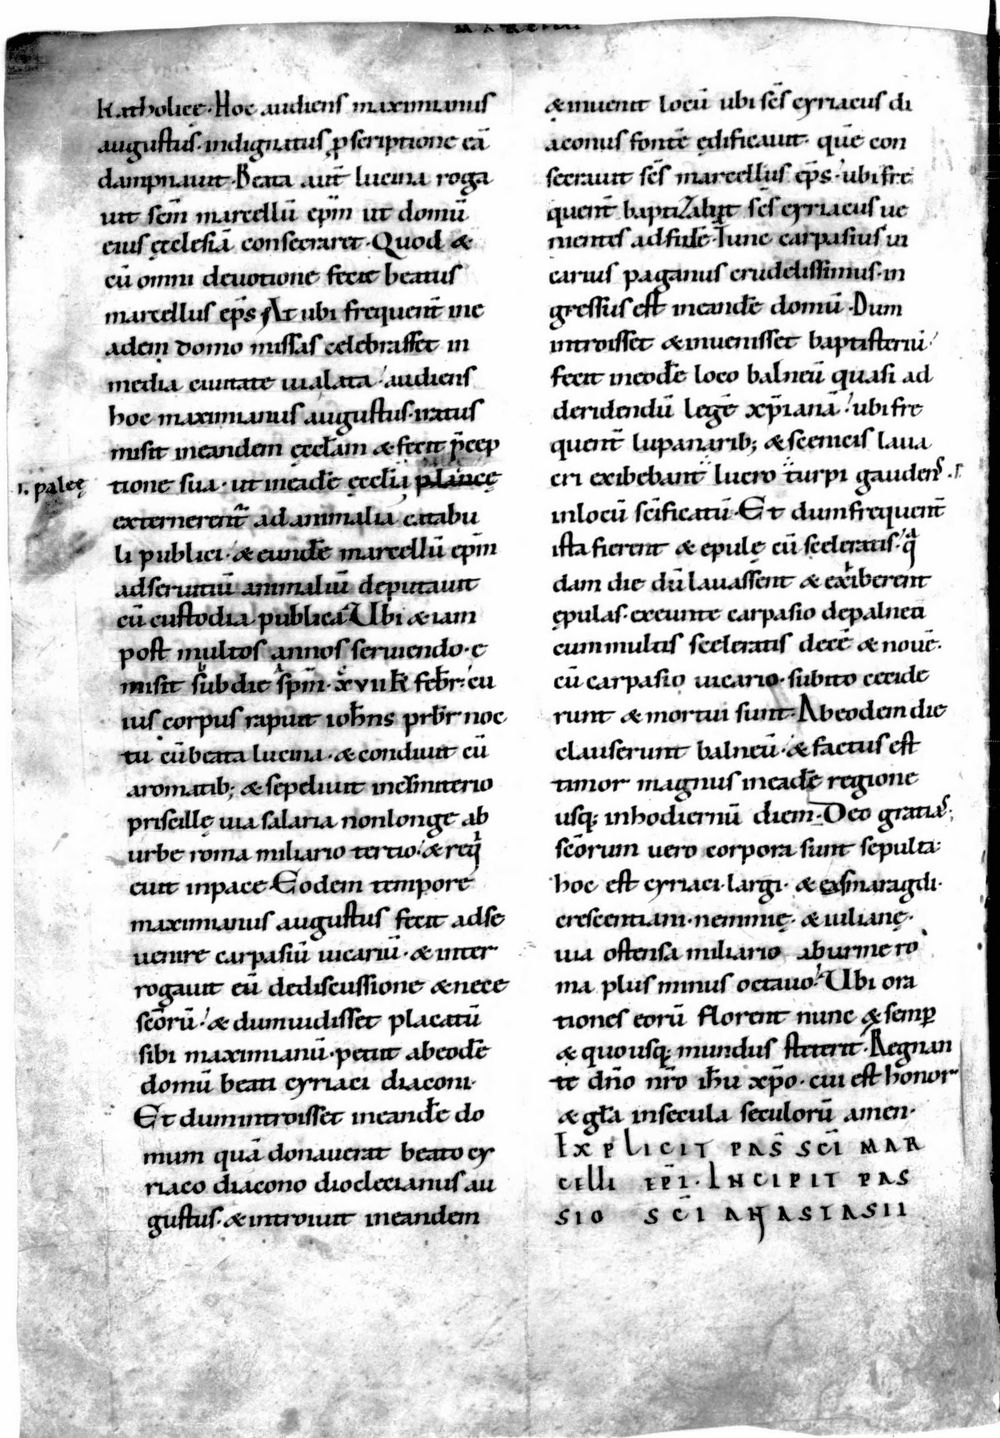 katholicę. Hoc audiens maximianus
augustus. indignatus ꝓscriptione eā
dampnauit. Beata aut̄ lucina roga
uit sc̄m marcellū ep̄m ut domū
eius ęcclesiā consecraret. Quod &
cū omni deuotione fecit beatus
marcellus ep̄s. At ubi frequent̄ in e
adem domo missas celebrasset in
media ciuitate uialata. audiens
hoc maximianus augustus. iratus
misit ineandem ęccl̄am & fecit p̄cep
tione sua. ut ineadē ęccl̄ia plancę
r. paleę
externerent̄ ad animalia catabu
li publici. & eundē marcellū ep̄m
ad seruitiū animaliū deputauit
cū custodia publica. Ubi & iam
post multos annos seruiendo. e
misit sub die sp̄m. xvii k̄ febr̄. cu
ius corpus rapuit ioh̄ns prb̄r noc
tu cū beata lucina. & condiuit cū
aromatib; & sepeliuit incimiterio
priscillę uia salaria non longe ab
urbe roma miliario tertio. & req
euit inpace. Eodem tempore
maximianus augustus fecit ad se
uenire carpasiū uicariū. & inter
rogauit eū de discussione & nece
sc̄orū. & dum uidisset placatū
sibi maximianū. petiit ab eodē
domū beati cyriaci diaconi.
Et dum introisset ineandē do
mum quā donauerat beato cy
riaco diacono dioclecianus au
gustus. & introiuit ineandem
& inuenit locū ubi sc̄s cyriacus di
aconus fontē ędificauit. quē con
secrauit sc̄s marcellus ep̄s. ubi fre
quent̄ baptizabat sc̄s cyriacus ue
nientes ad fidē. Tunc carpasius ui
carius paganus crudelissimus. in
gressus est ineandē domū. Dum
introisset & inuenisset baptisteriū.
fecit ineodē loco balneū quasi ad
deridendū legē xp̄ianā. ubi fre
quent̄ lupanarib; & scenicis laua
cri exibebant̄ lucro turpi gaudens.
inlocū sc̄ificatū. Et dum frequent̄
ista fierent & epulę cū sceleratis. q
dam die dū lauassent & exiberent
ępulas. exeunte carpasio de palneū
cum multis sceleratis decē & nouē.
cū carpasio uicario. subito cecide
runt & mortui sunt. Ab eodem die
clauserunt balneū. & factus est
timor magnus ineadē regione
usq; inhodiernū diem. Deo gratias;
sc̄orum uero corpora sunt sepulta.
hoc est cyriaci. largi. & exsmaragdi.
crescentiani. nemmię. & iulianę.
uia ostensa miliario ab urme ro
ma plus minus octauo. Ubi ora
tiones eorū florent nunc & semꝑ
& quousq; mundus steterit. Regnan
te dn̄o nr̄o ih̄u xp̄o. cui est honor
& gl̄a insecula seculorū amen.
EXPLICIT PAS̄ SC̄I MAR
CELLI EP̄I. INCIPIT PAS
SIO SC̄I ANASTASII